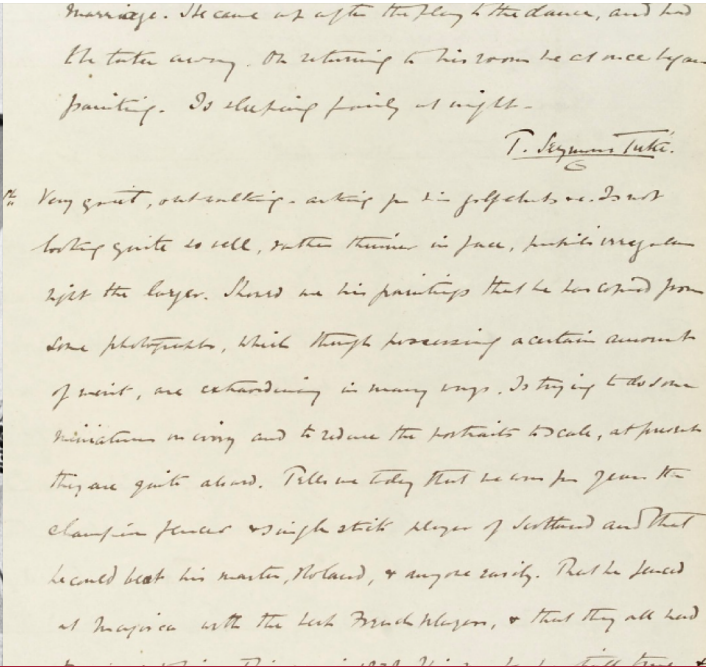 marriage. He came up after the play to the dance, and had
the tutor away. On returning to his room he at once began
painting. Is sleeping fairly at night.
T. Seymour Tuke.
Very quiet, out walking - asking for his golf clubs &c. Is not
looking quite so well, rather thinner in face, pupils irregular
right the larger. Showed me his paintings that he has copied from
some photographs, which though possessing a certain amount
of merit, are extraordinary in many ways. Is trying to do some
miniatures on ivory and to reduce the portraits to scale, at present
they are quite absurd. Tells me today that he was for years the
champion fencer & single stick player of Scotland and that
he could beat his master, Roland, & anyone easily. That he fenced
at Majorca with the best French players, & that they all had